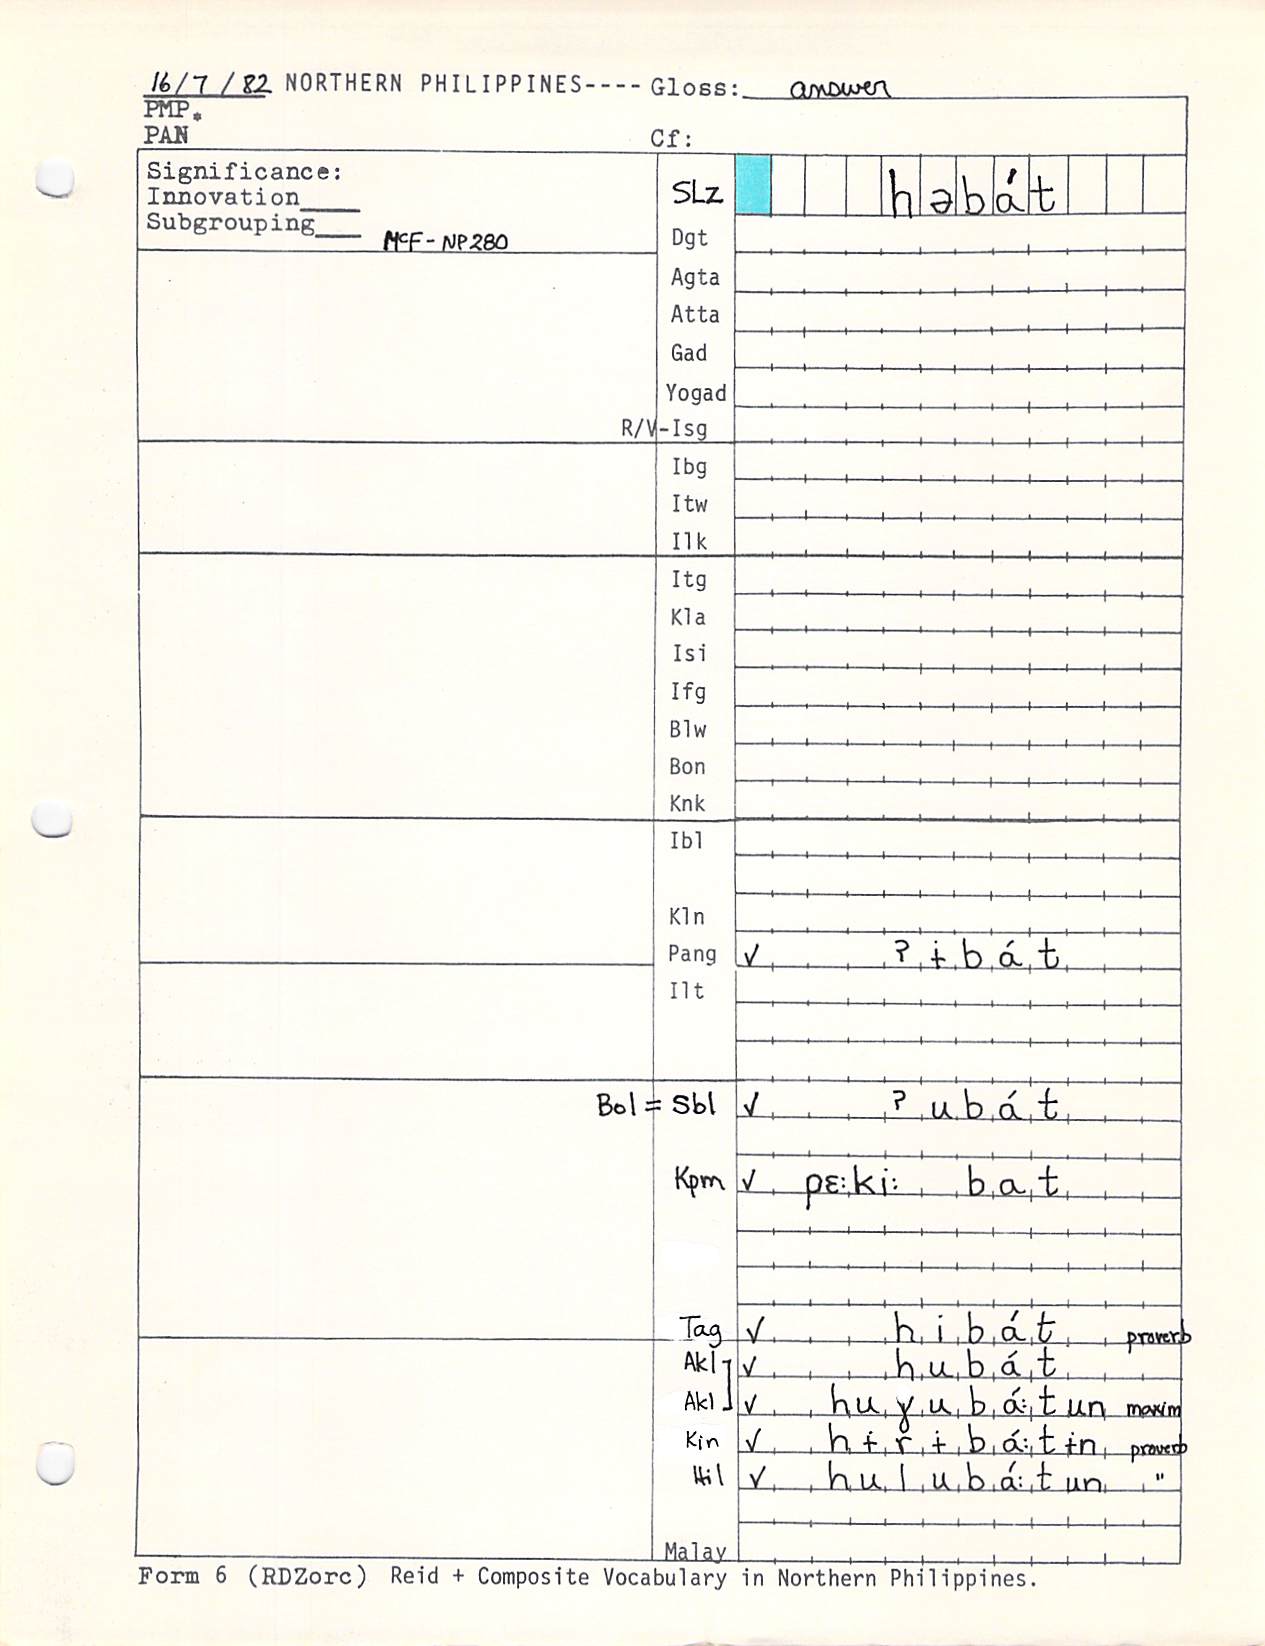 16/7/82 NORTHERN PHILIPPINES---- Gloss: answer
PMP.
PAN Cf:
Significance:
Innovation____
Subgrouping___ McF-NP280
SLz həbát
Dgt
Agta
Atta
Gad
Yogad
R/V-Isg
Ibg
Itw
Ilk
Itg
Kla
Isi
Ifg
Blw
Bon
Knk
Ibl
Kln
Pang ✓ ʔɨbát
Ilt
Bol = Sbl ✓ ʔubát
Kpm ✓ pɛ:ki: bat
Tag ✓ hibát proverb
Akl ✓ hubát
Akl ✓ huɣubá:tun maxim
Kin ✓ hɨrɨbá:tɨn proverb
Hil ✓ hulubá:tun "
Malay
Form 6 (RDZorc) Reid + Composite Vocabulary in Northern Philippines.